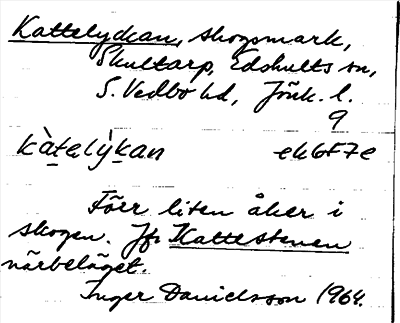 Kattelyckan, skogsmark,
Skultarp, Edshults sn,
S. Vedbo hd, Jönk. l.
9
kàt̲elỳk̲an ek6F7e
Förr liten åker i
skogen. Jfr Kattestenen
närbeläget.
Inger Danielsson 1964.